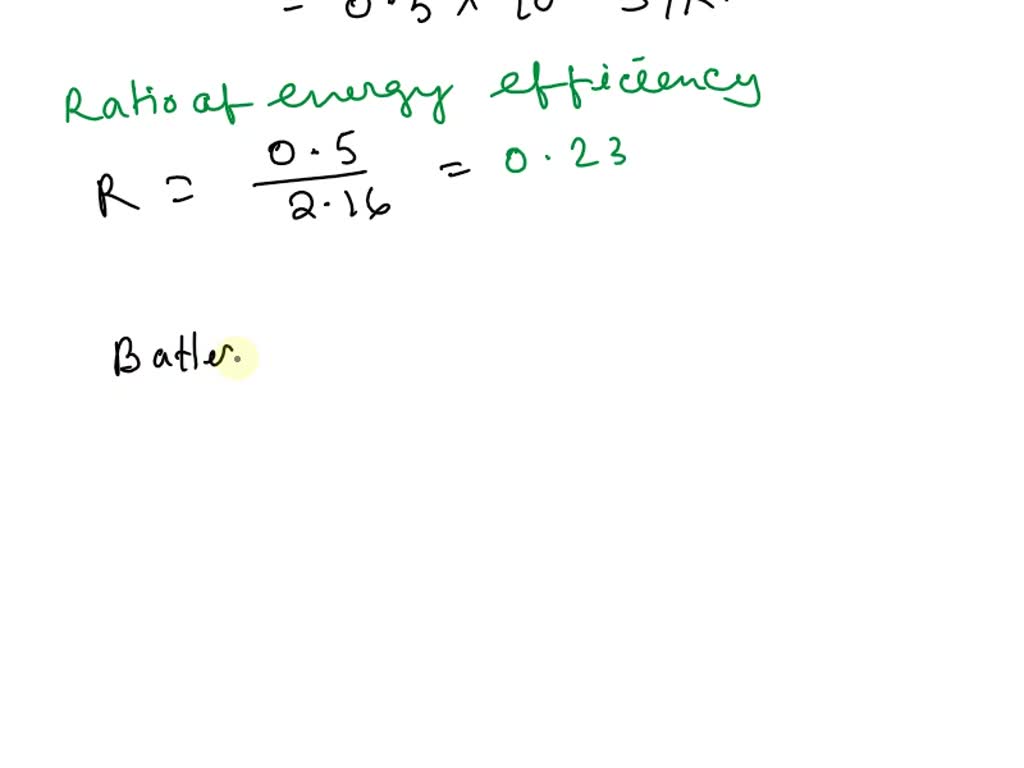 = 0.5 × 10
Ratio of energy efficiency
R = 0.5 / 2.16 = 0.23
Batter